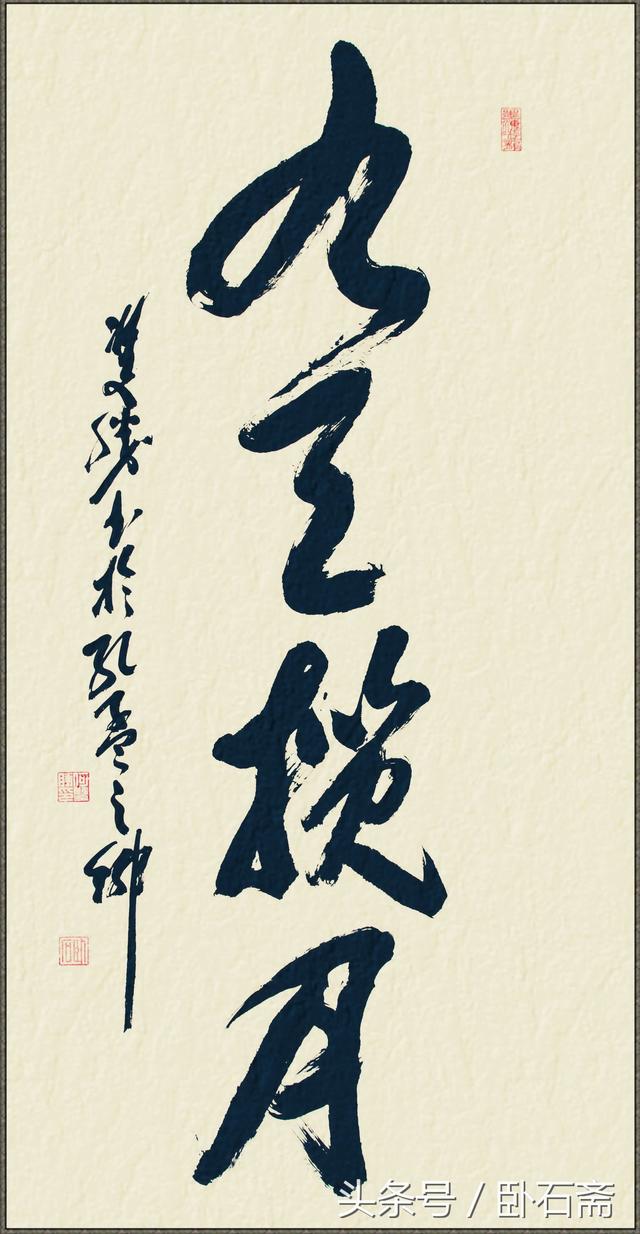 九天揽月
双胜书於孔孟之乡
头条号 / 卧石斋